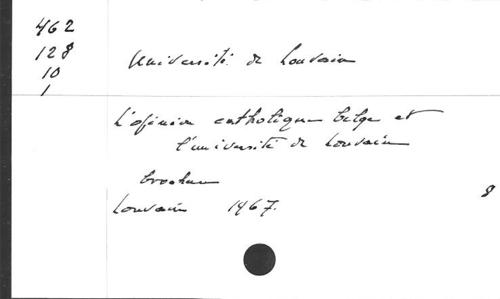 462
128
10
1
Université de Louvain
L'opinion catholique belge et
l'université de Louvain
brochure
Louvain 1967.
8